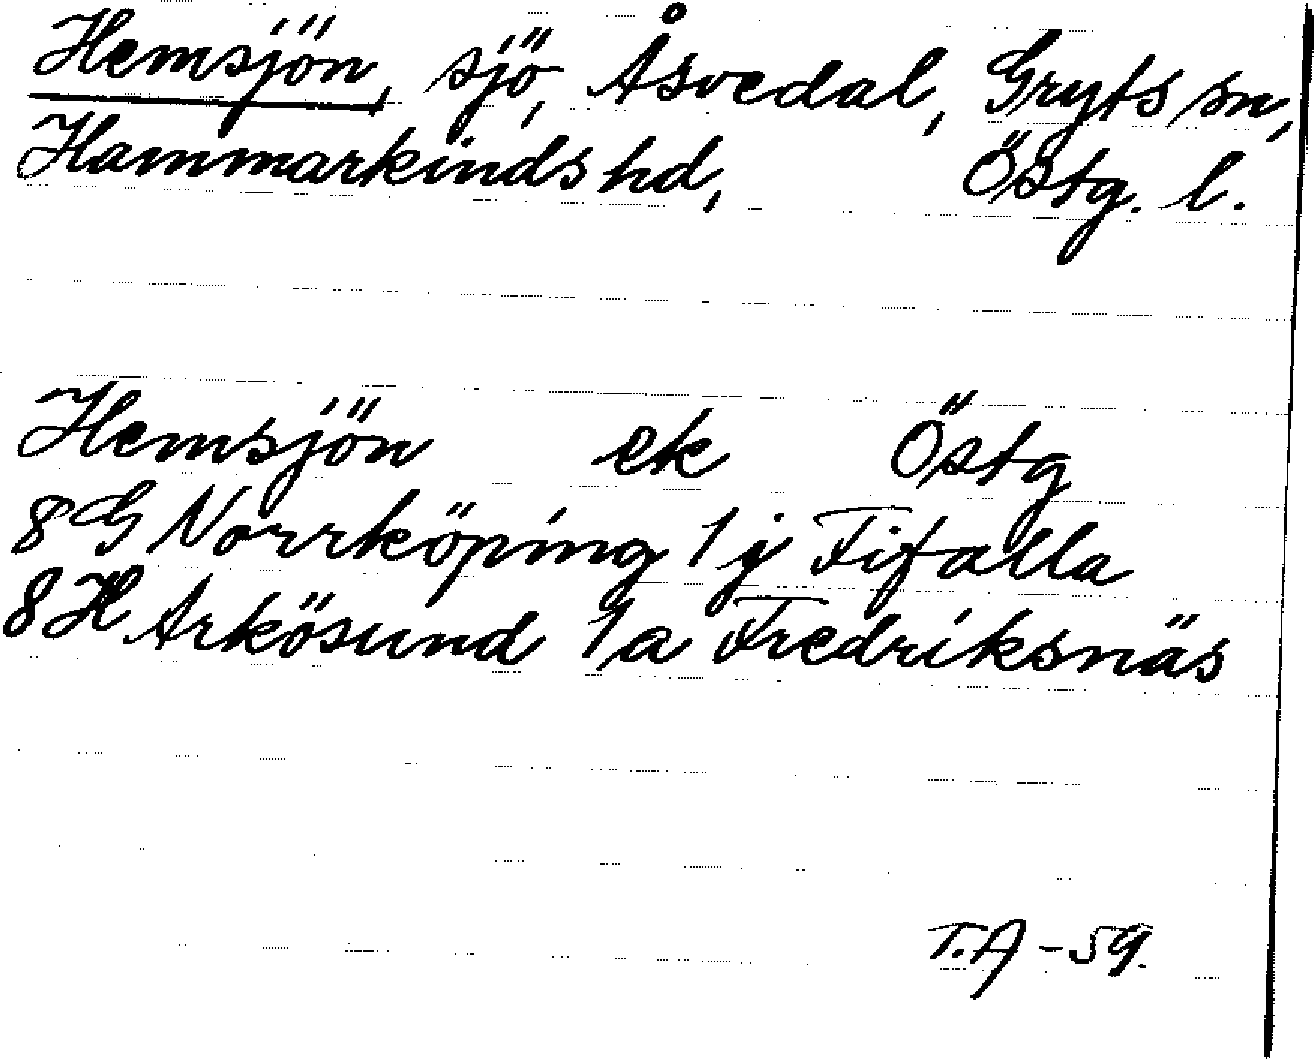 Hemsjön, sjö, Åsvedal, Gryts sn,
Hammarkinds hd, Östg. l.
Hemsjön ek Östg
8 G Norrköping 1 j Fifalla
8 H Arkösund 1 a Fredriksnäs
T.A -59.